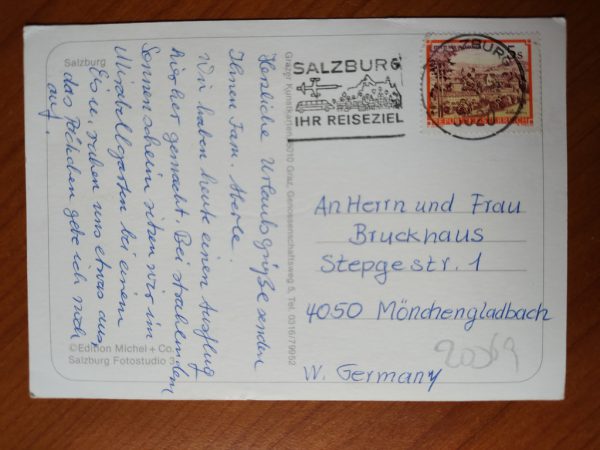 Salzburg
Herzliche Urlaubsgrüße senden
Ihnen Fam.
Wir haben heute einen Ausflug
hierher gemacht. Bei strahlendem
Sonnenschein sitzen wir im
Mirabellgarten bei einem
Eis u. ruhen uns etwas aus,
das Päckchen gebe ich noch
auf.
©Edition Michel + Co.
Salzburg Fotostudio 2
Grazer Kunstkarten, 8010 Graz, Genossenschaftsweg 5, Tel. 0316/79952
SALZBURG
IHR REISEZIEL
SALZBURG
5 S
An Herrn und Frau
Bruckhaus
Stepgestr. 1
4050 Mönchengladbach
W. Germany